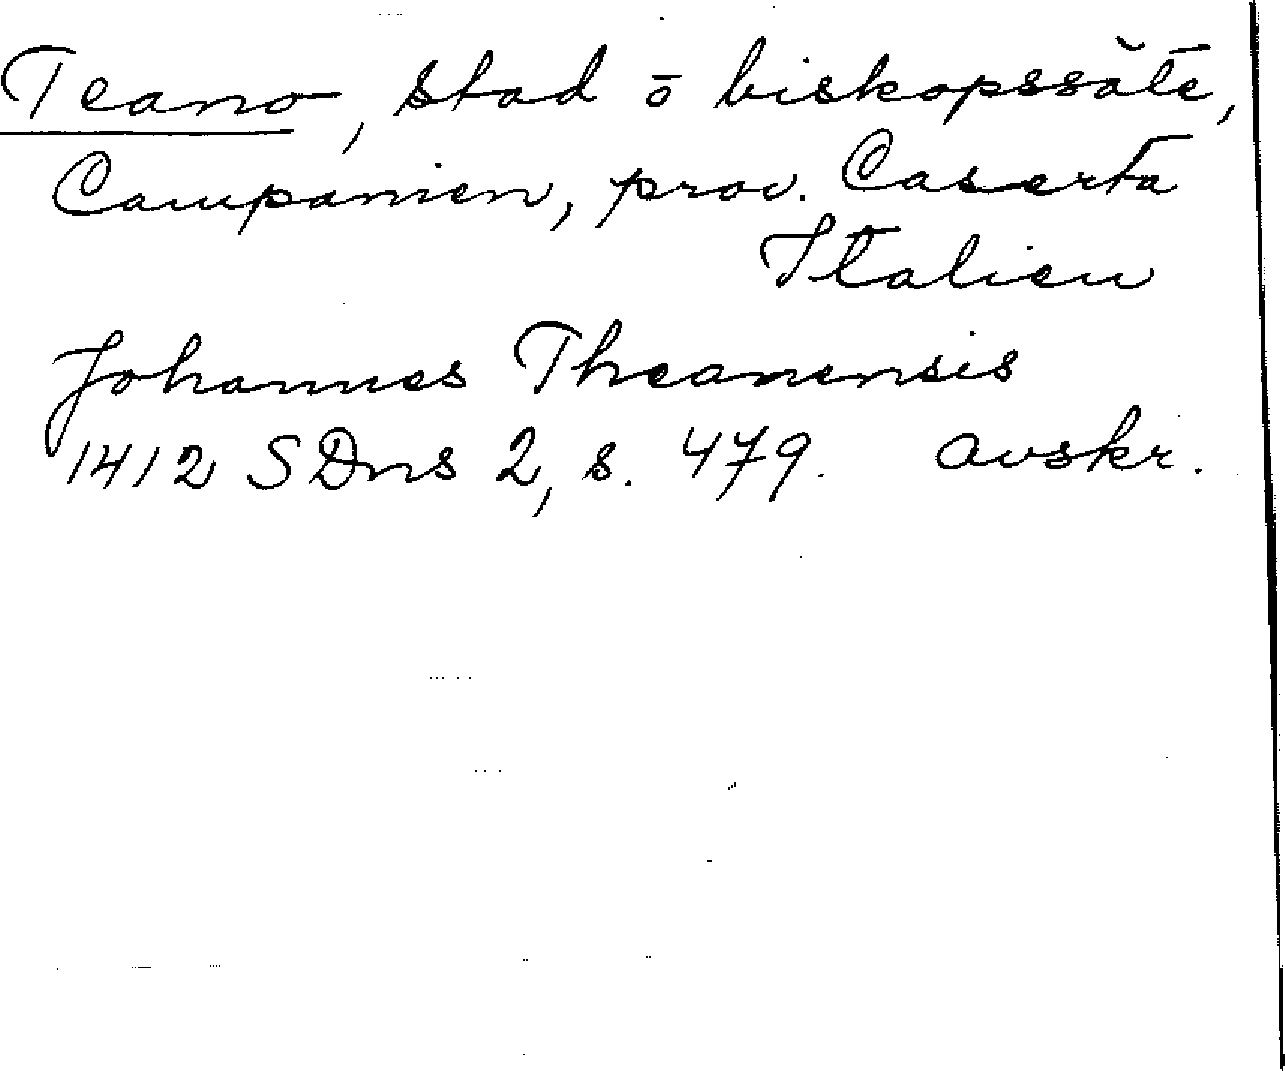 Teano, stad ō biskopssäte,
Campanien, prov. Caserta
Italien
Johannes Theanensis
1412 SDns 2, s. 479. avskr.